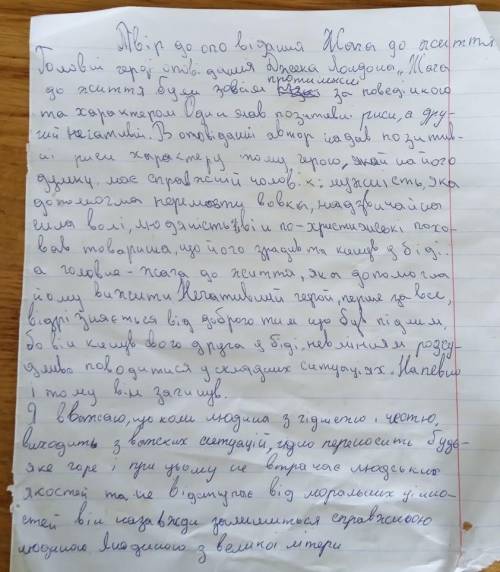 Твір до оповідання Жага до життя
Головні герої оповідання Джека Лондона „Жага
до життя були зовсім протилежні за поведінкою
та характером Один мав позитивні риси, а дру-
гий негативні. В оповіданні автор надав позитив-
ні риси характеру тому герою, який на його
думку має справжній чоловік: мужність, яка
допомогла перемогти вовка, надзвичайна
сила волі, людяність він по-християнські похо-
вав товариша, що його зрадив та кинув в біді..
а головне - жага до життя, яка допомогла
йому вижити Негативний герой, перш за все,
відрізняється від доброго тим що був підлим,
бо він кинув свого друга у біді, невмінням розсу-
дливо поводитися у складних ситуаціях. Напевно
і тому він загинув.
Я вважаю, що коли людина з гідністю і честю,
виходить з важких ситуацій, гідно переносить будь-
яке горе і при цьому не втрачає людських
якостей та не відступає від моральних цінно-
стей він назавжди залишиться справжньою
людиною Людиною з великої літери